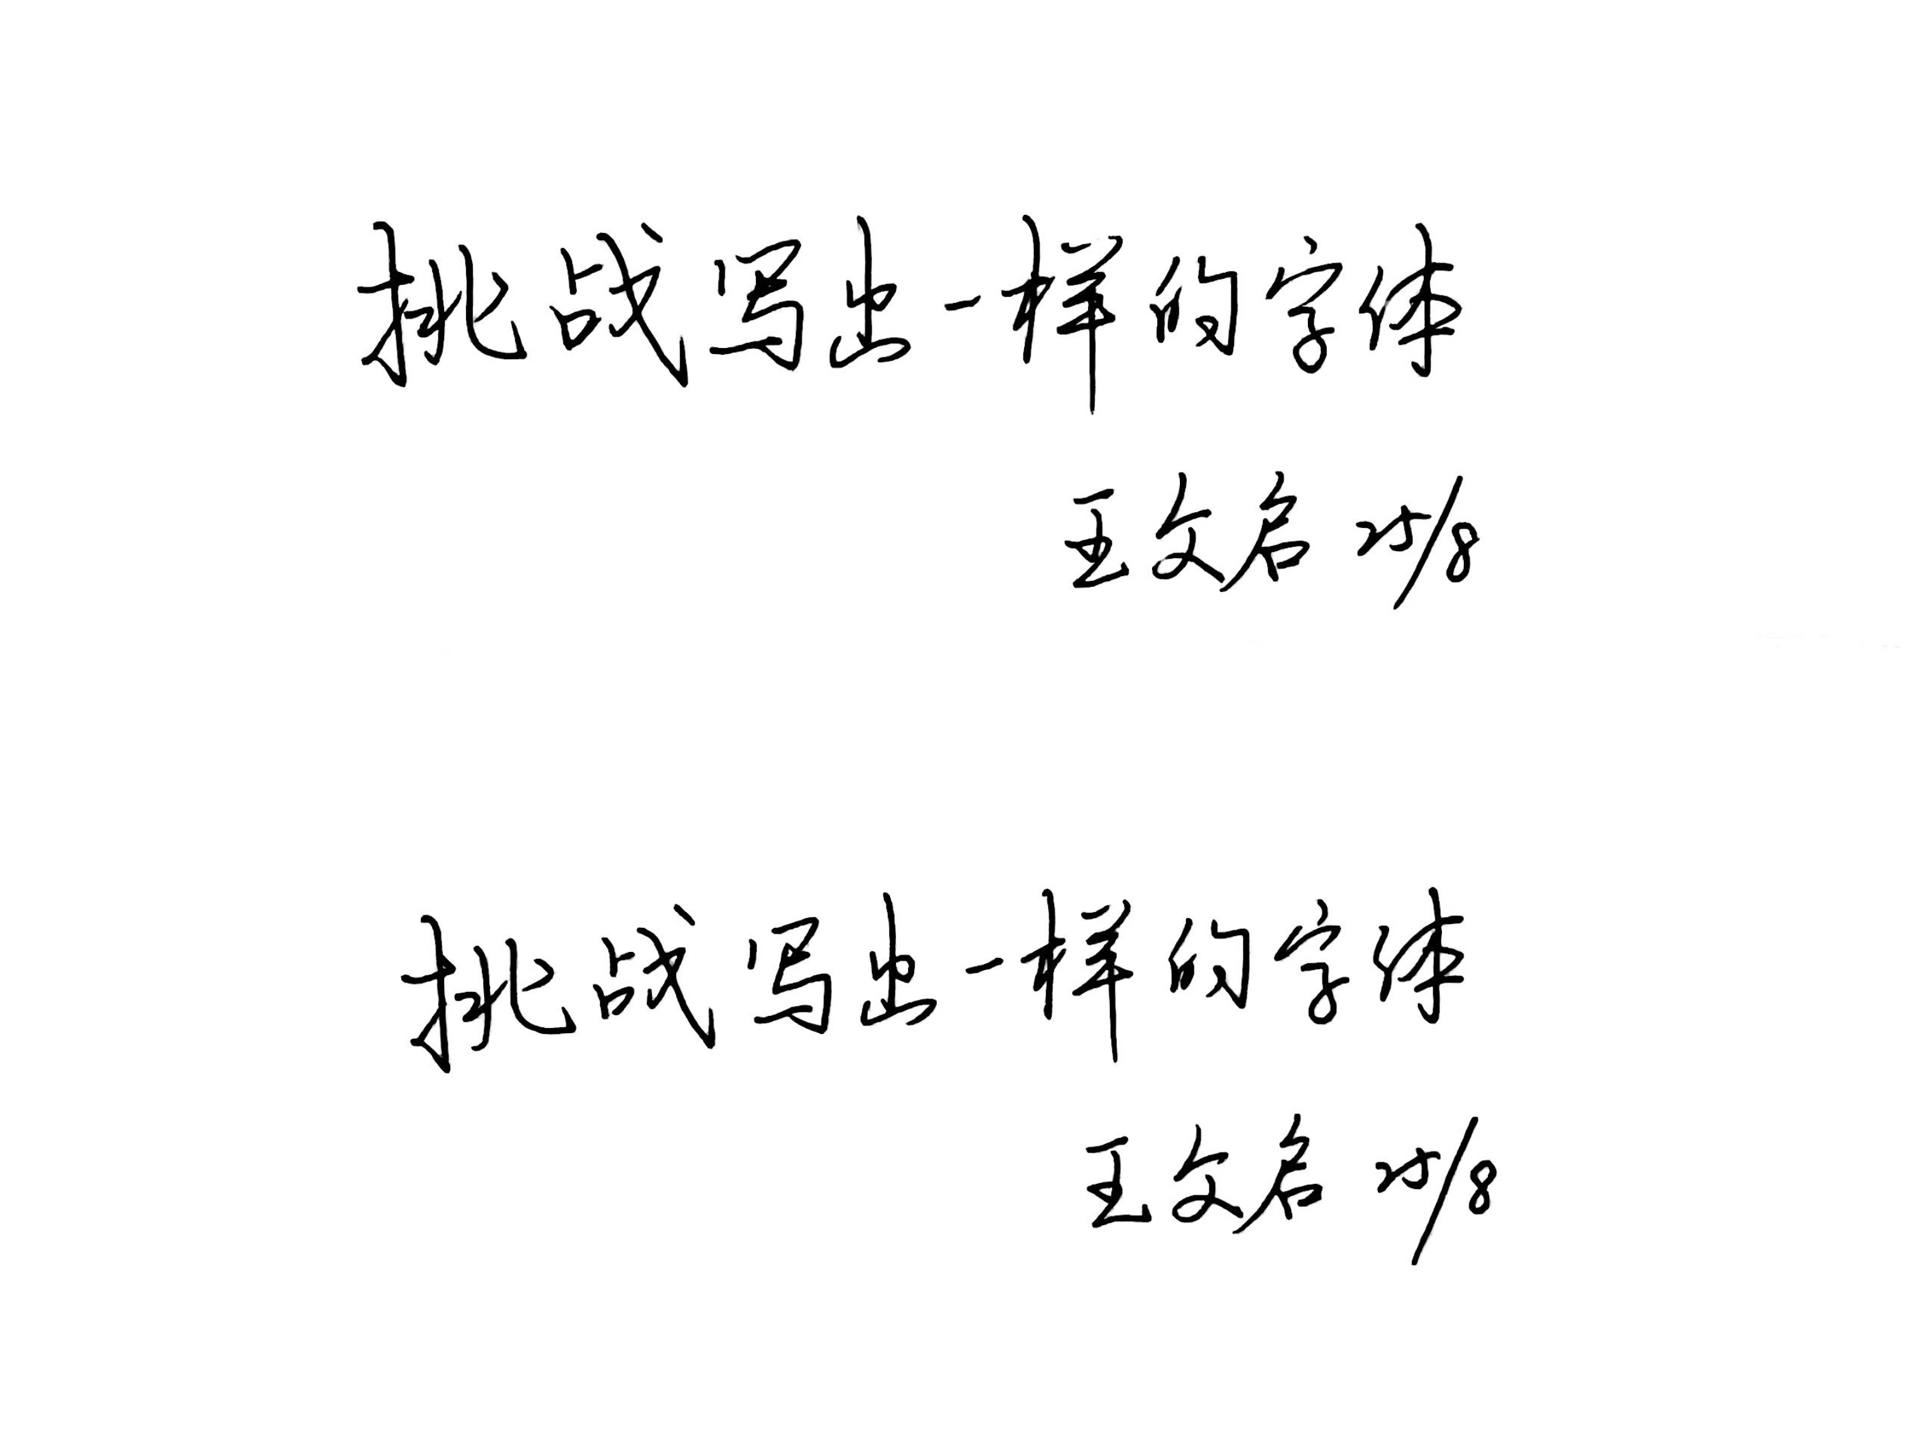 挑战写出一样的字体
王文启 25/8
挑战写出一样的字体
王文启 25/8